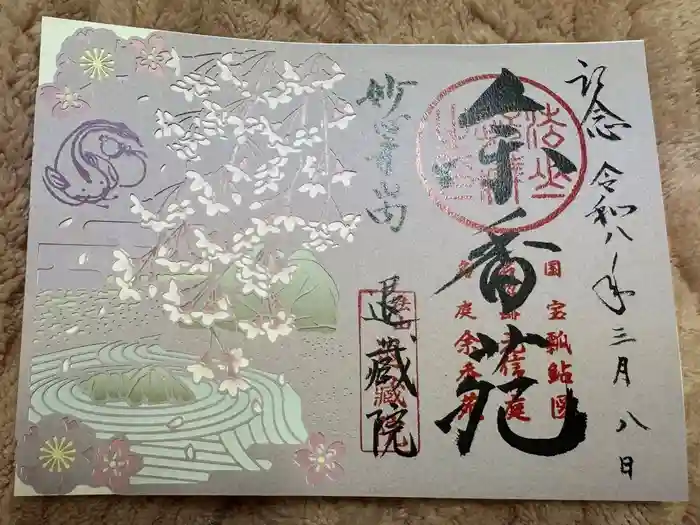 記念 令和八年三月八日
余香苑
国宝瓢鮎図
庭余香苑
妙心寺山
退蔵院